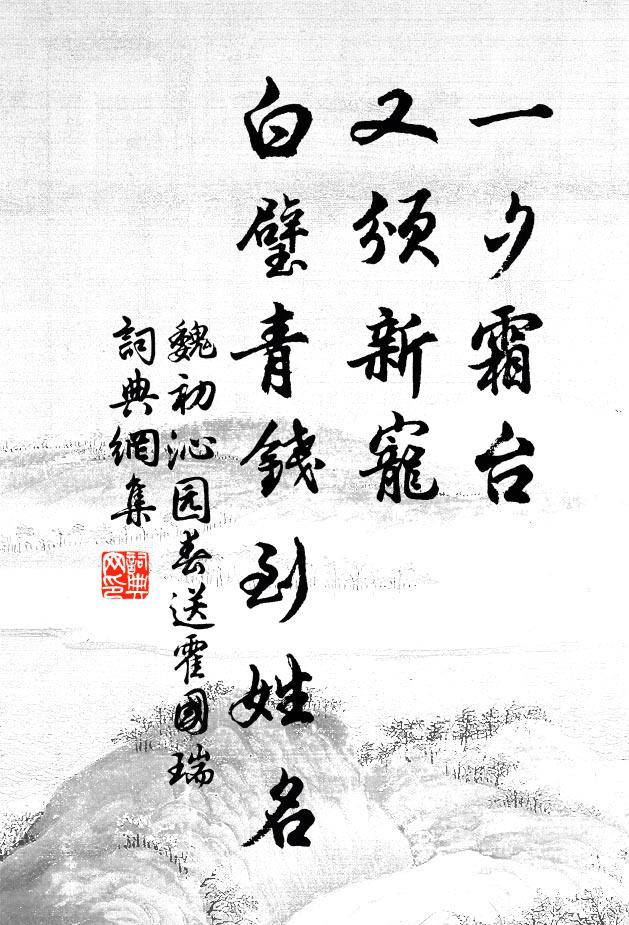 一夕霜台
又须新宠
白璧青錢到姓名
魏初沁园春送霍國瑞
詞典網集
詞典
网印